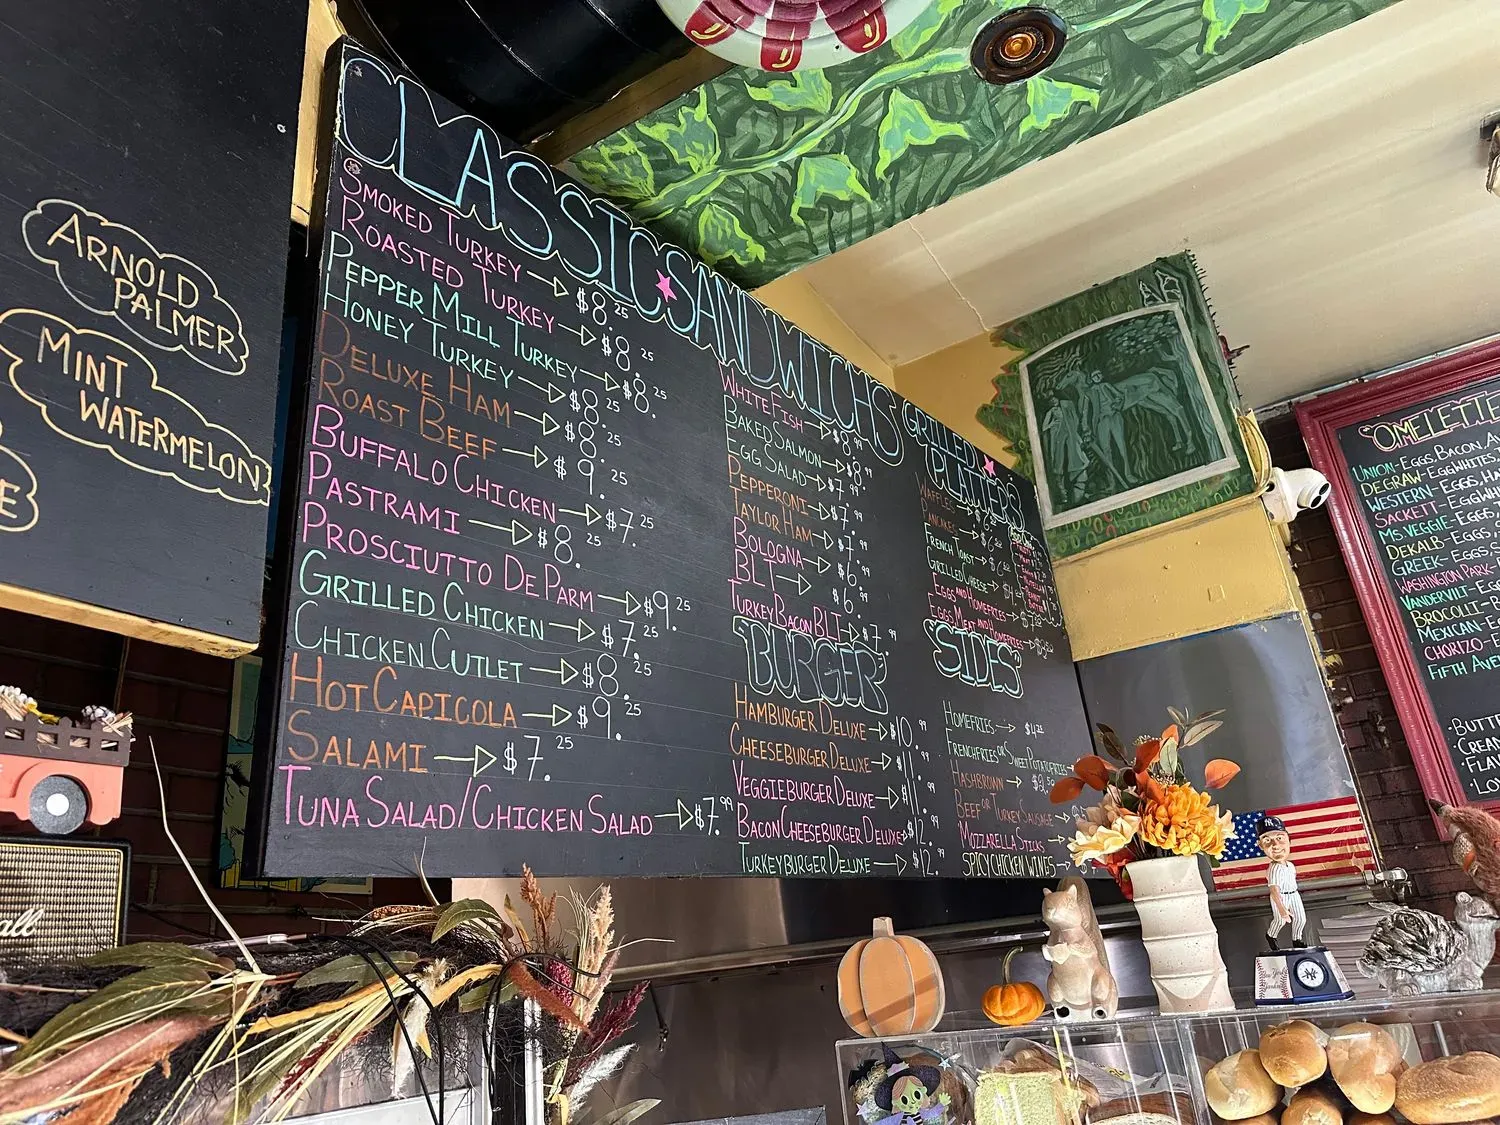 ARNOLD
PALMER
MINT
WATERMELON
CLASSIC SANDWICHS
SMOKED TURKEY $8.25
ROASTED TURKEY $8.25
PEPPER MILL TURKEY $8.25
HONEY TURKEY $8.25
DELUXE HAM $8.25
ROAST BEEF $9.25
BUFFALO CHICKEN $7.25
PASTRAMI $8.25
PROSCIUTTO DE PARM $9.25
GRILLED CHICKEN $7.25
CHICKEN CUTLET $8.25
HOT CAPICOLA $9.25
SALAMI $7.25
TUNA SALAD/CHICKEN SALAD $7.99
WHITE FISH $8.99
BAKED SALMON $8.99
EGG SALAD $7.99
PEPPERONI $7.99
TAYLOR HAM $7.99
BOLOGNA $6.99
BLT $6.99
TURKEY BACON BLT $7.99
"BURGER"
HAMBURGER DELUXE $10.99
CHEESEBURGER DELUXE $11.99
VEGGIEBURGER DELUXE $11.99
BACON CHEESEBURGER DELUXE $12.99
TURKEYBURGER DELUXE $12.99
GRILLED
PLATTERS
WAFFLES
PANCAKES
FRENCH TOAST
GRILLED CHEESE
EGGS AND HOMEFRIES
EGGS, MEAT AND HOMEFRIES
"SIDES"
HOMEFRIES
FRENCHFRIES OR SWEET POTATO FRIES
HASHBROWN
BEEF OR TURKEY SAUSAGE
MOZZARELLA STICKS
SPICY CHICKEN WINGS
"OMELETTE
UNION-EGGS, BACON, A
DEGRAW-EGGWHITES,
WESTERN-EGGS, HA
SACKETT-EGGWH
MS. VEGGIE-EGGS,
DEKALB-EGGS,
GREEK-EGGS, S
WASHINGTON PARK-
VANDERVILT-EG
BROCOLLI-
MEXICAN-E
CHORIZO-E
FIFTH AVE
·BUTTE
·CREAM
·FLAV
·LO
all
NY